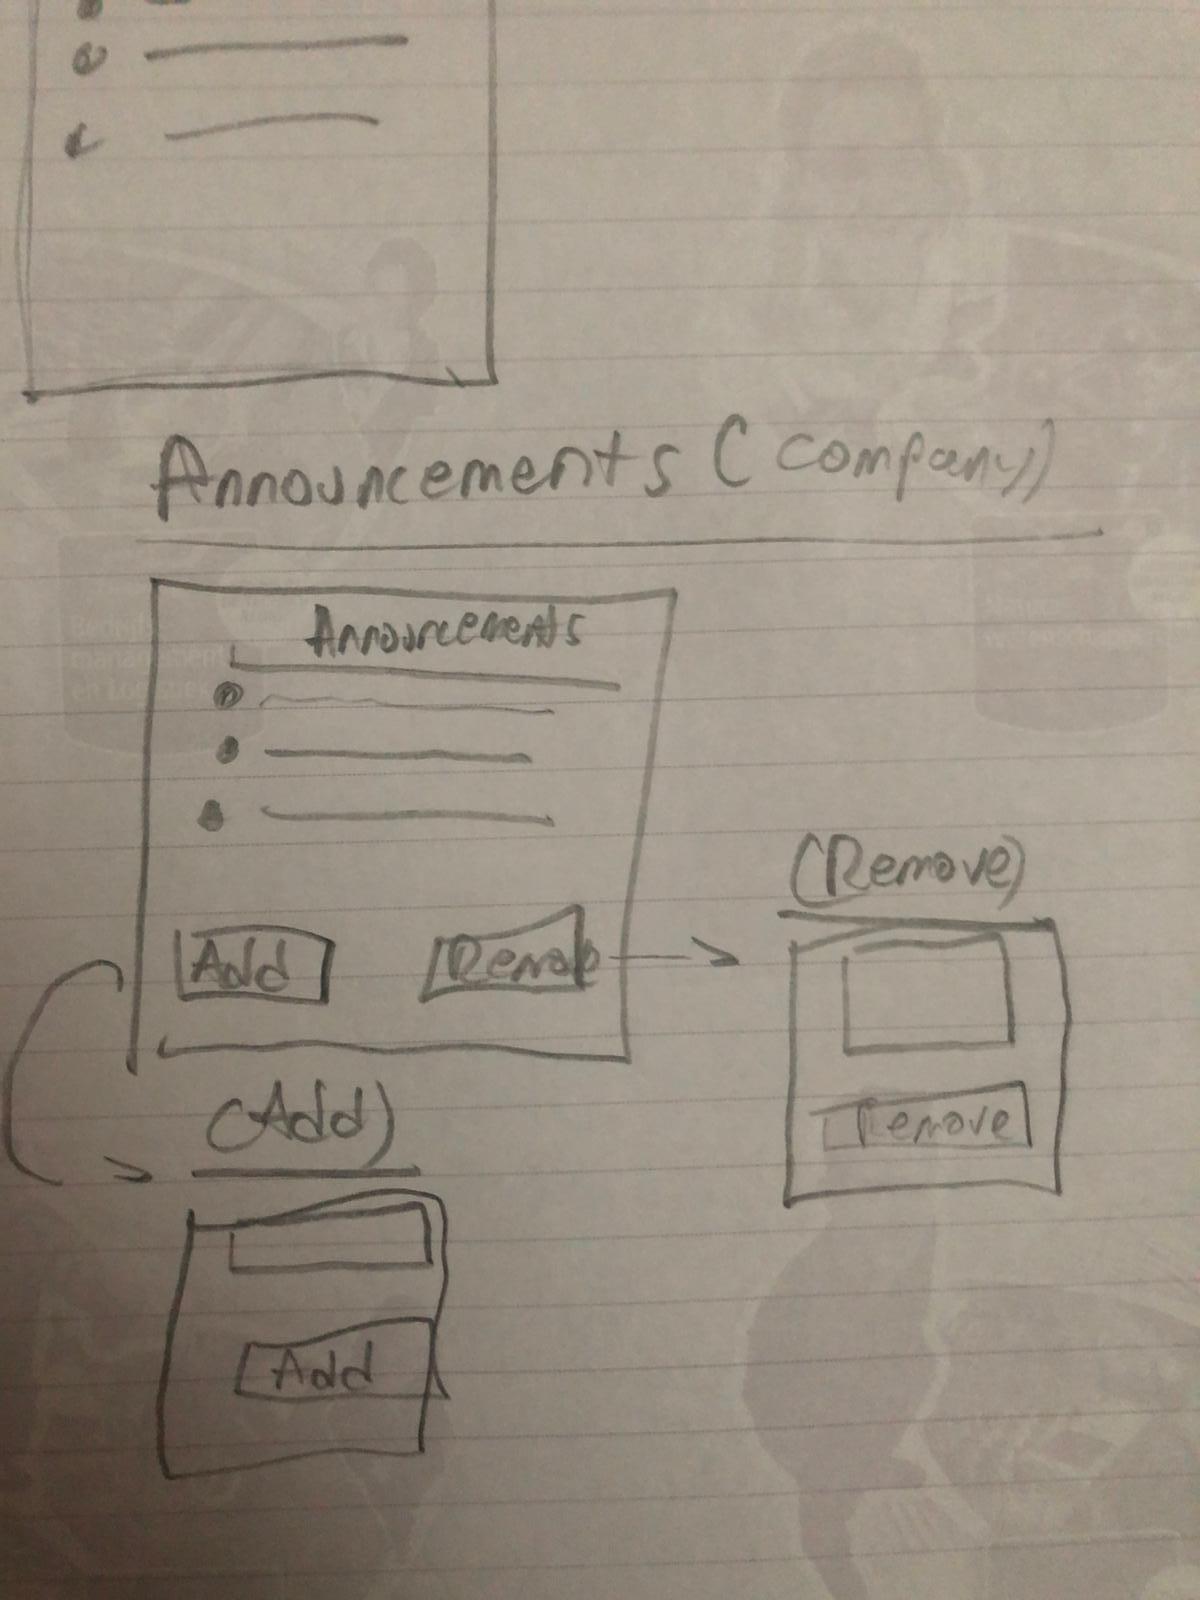 Announcements (company)
Announcements
Add
Remove
(Remove)
Remove
(Add)
Add
management